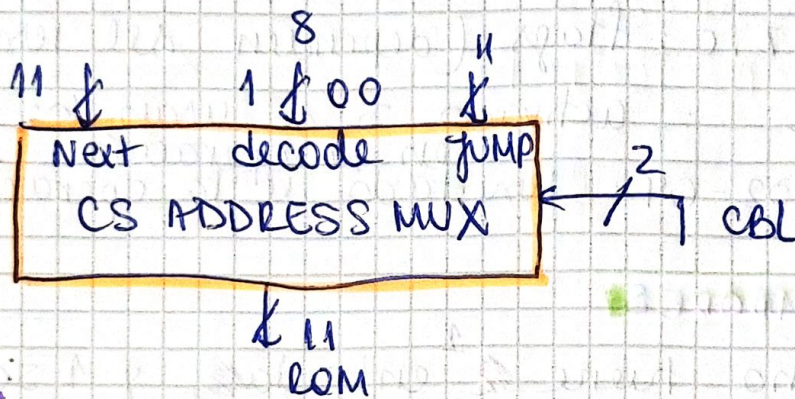 8
11 1 00 11
Next decode JUMP
CS ADDRESS MUX
2
CBL
11
ROM